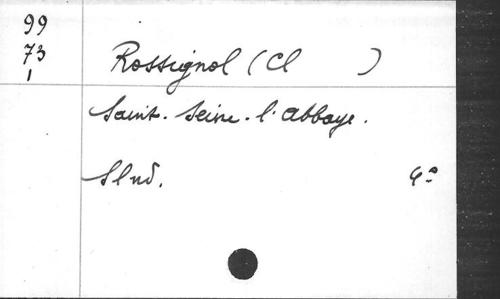 99
73
1
Rossignol (Cl )
Saint-Seine-l'abbaye.
Slnd. 4º